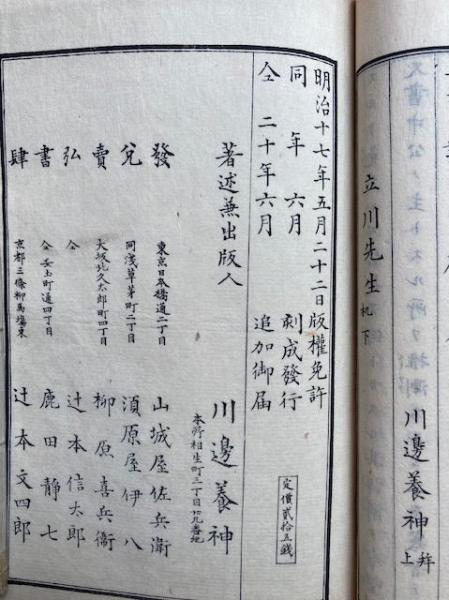 立川先生 机下
川邊養神
上 拜
明治十七年五月二十二日版權免許
同 年 六月 刻成發行
仝 二十年六月 追加御届
定價貳拾五錢
著述兼出版人 川邊養神
本所相生町三丁目廿九番地
發 東京日本橋通二丁目 山城屋佐兵衛
兌 同浅草茅町二丁目 須原屋伊八
賣 大坂北久太郎町四丁目 柳原喜兵衞
弘 仝 辻本信太郎
書 仝安土町通四丁目 鹿田靜七
肆 京都三條柳馬塲東 辻本文四郎